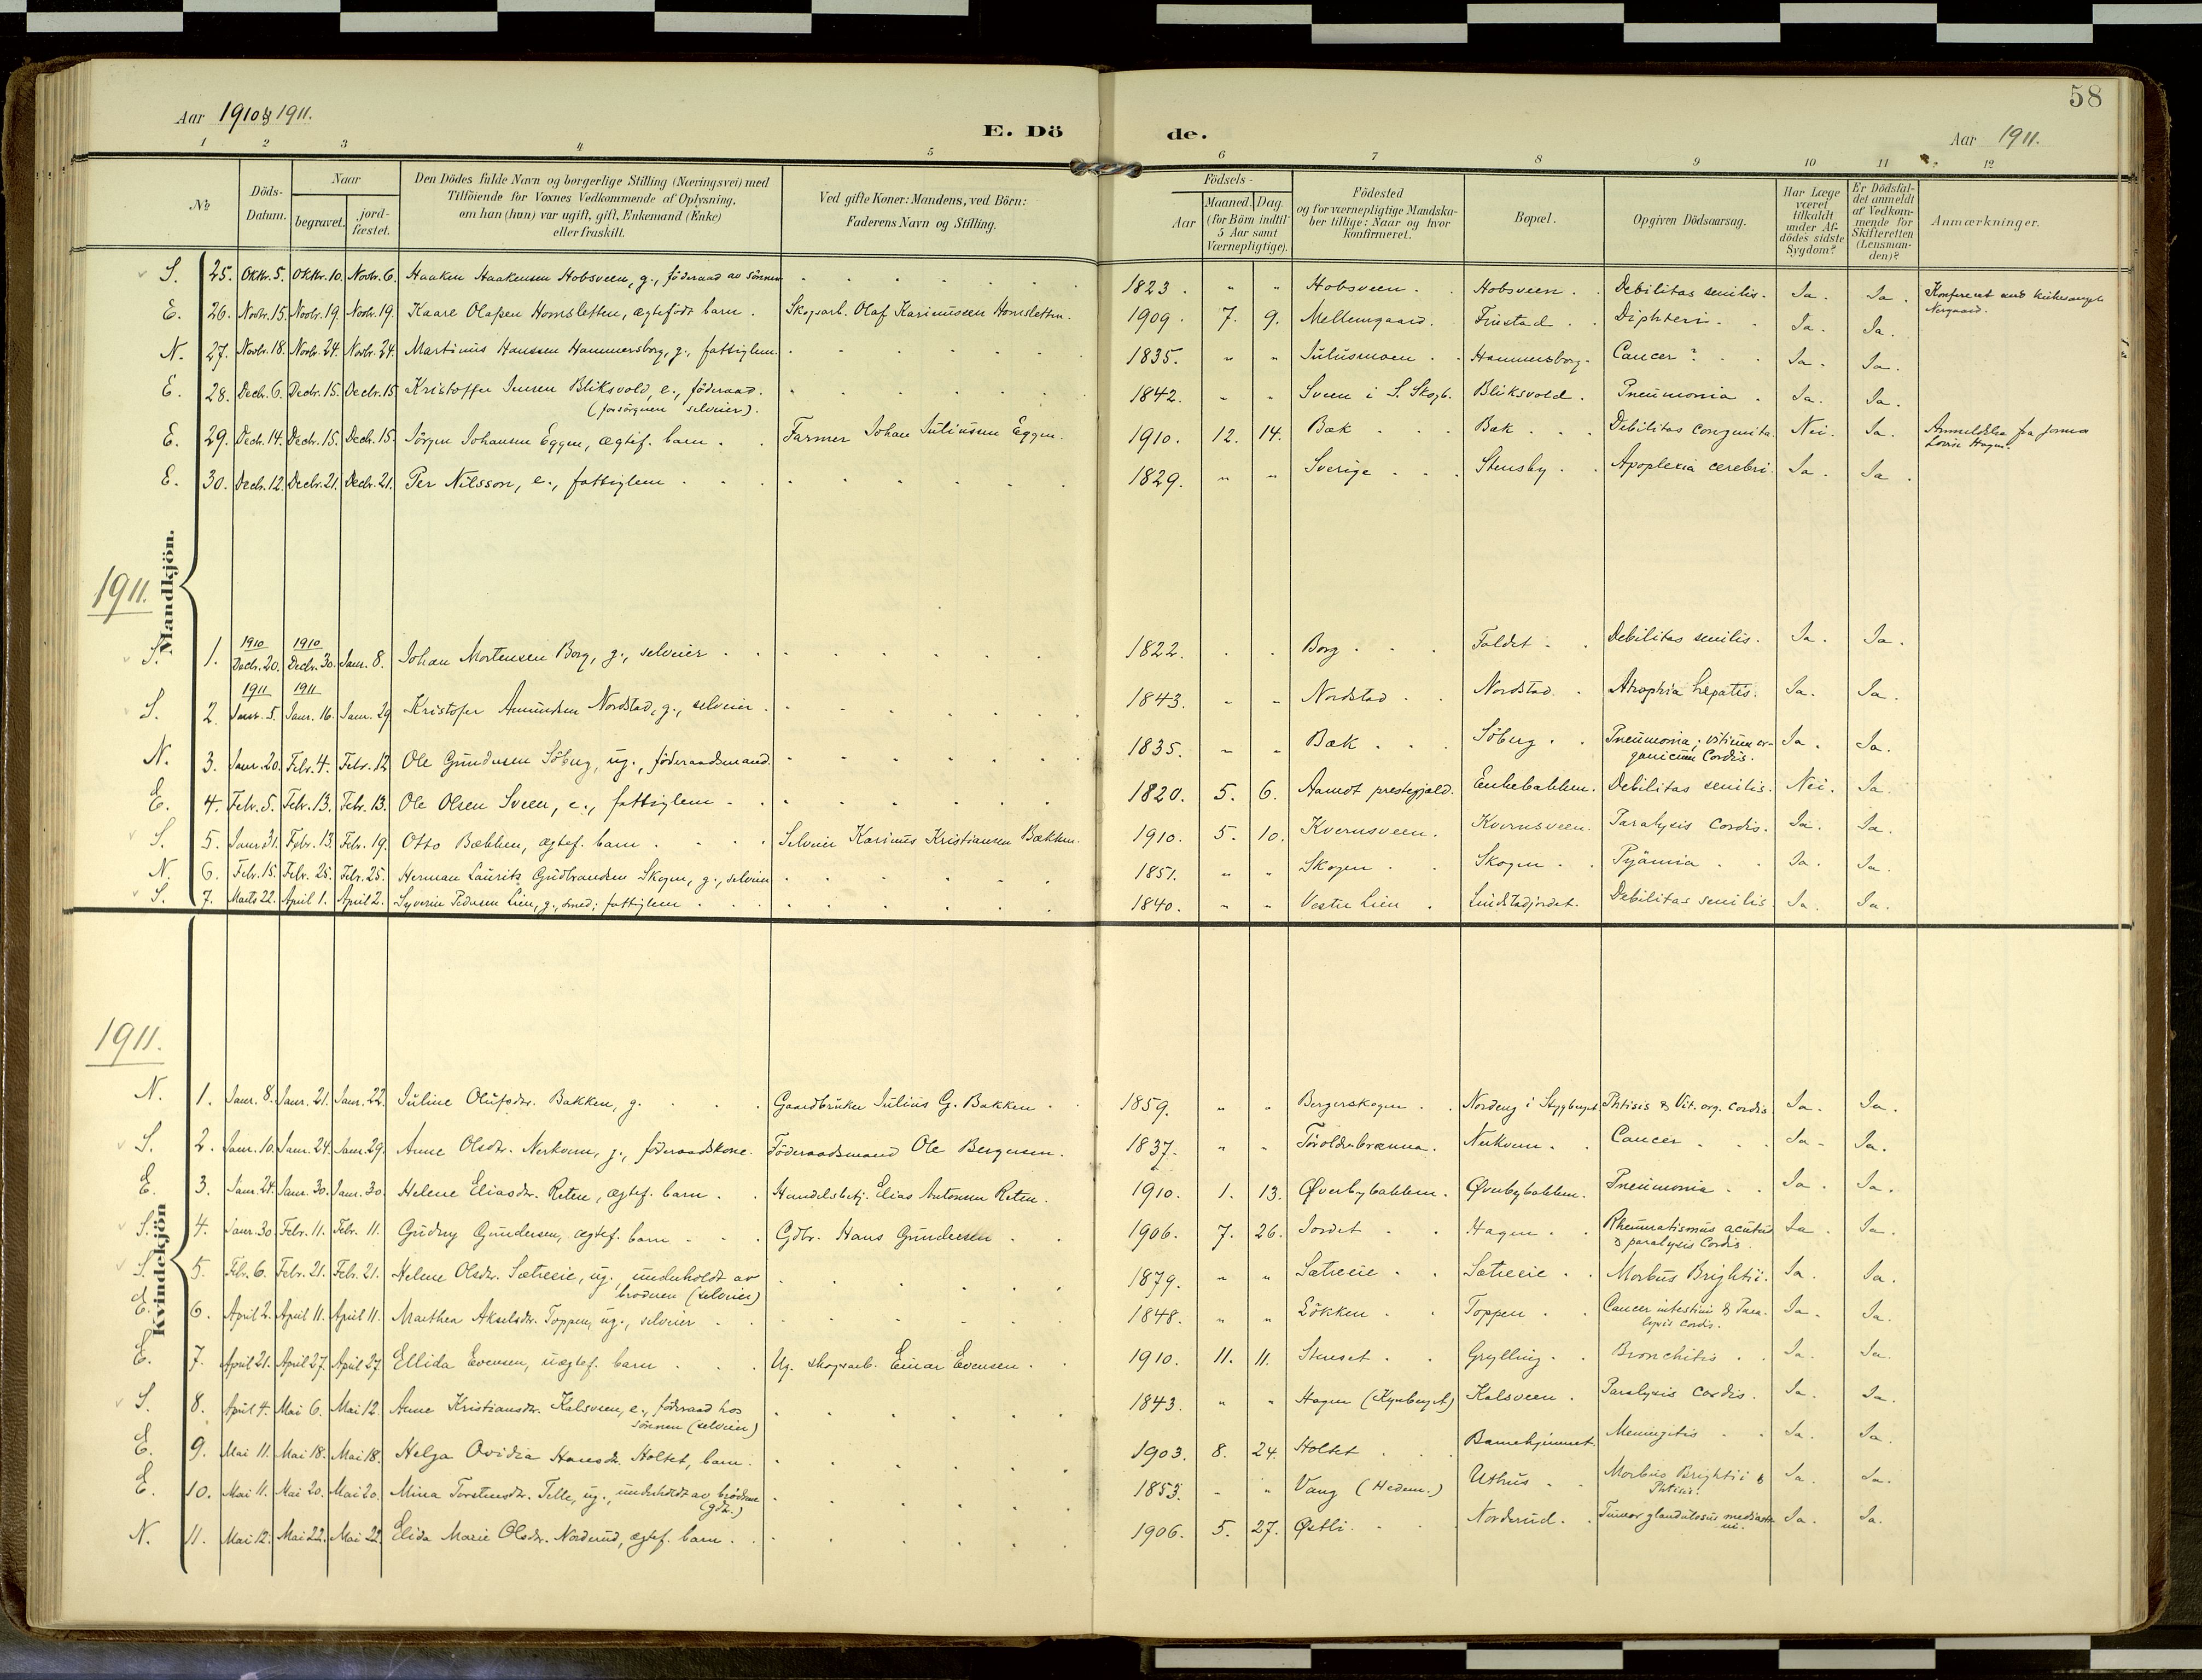 58
Aar 1910 & 1911.
E. Dö
de.
Aar 1911.
1 2 3 4 5 6 7 8 9 10 11 12
№
Döds-Datum.
Naar
begravet.
jord-fæstet.
Den Dödes fulde Navn og borgerlige Stilling (Næringsvei) med
Tilföiende for Voxnes Vedkommende af Oplysning,
om han (hun) var ugift, gift, Enkemand (Enke)
eller fraskilt.
Ved gifte Koner: Mandens, ved Börn:
Faderens Navn og Stilling.
Födsels-
Aar
Maaned. Dag.
(for Börn indtil
5 Aar samt
Værnepligtige).
Födested
og for værnepligtige Mandska-
ber tillige: Naar og hvor
konfirmeret.
Bopæl.
Opgiven Dödsaarsag.
Har Læge
været
tilkaldt
under Af-
dödes sidste
Sygdom?
Er Dödsfal-
det anmeldt
af Vedkom-
mende for
Skifteretten
(Lensman-
den)?
Anmærkninger.
Mandkjön.
S. 25. Oktbr. 5. Oktbr. 10. Novbr. 6. Haaken Haakensen Hobsveen, g., föderaad av sönnen 1823. " " Hobsveen. Hobsveen. Debilitas senilis. Ja. Ja.
E. 26. Novbr. 15. Novbr. 19. Novbr. 19. Kaare Olafsen Homsletten, ægtefödt barn. Skogsarb. Olaf Karinussen Homsletten. 1909. 7. 9. Mellemgaard. Diphteri. Ja. Ja.
N. 27. Novbr. 18. Novbr. 24. Novbr. 24. Martinus Hanssen Hammersborg, g., fattiglem. 1835. " " Julusmoen. Hammersborg. Cancer? Ja. Ja.
E. 28. Decbr. 6. Decbr. 15. Decbr. 15. Kristoffer Jensen Bliksvold, e., föderaad.
(forsörgeren selveier). 1842. " " Sveen i S. Skogb. Bliksvold. Pneumonia. Ja. Ja.
E. 29. Decbr. 14. Decbr. 15. Decbr. 15. Jörgen Johansen Eggen, ægtef. barn. Farmer Johan Juliussen Eggen. 1910. 12. 14. Bæk Bæk Debilitas congenita. Nei. Ja. Anmeldelse fra
E. 30. Decbr. 12. Decbr. 21. Decbr. 21. Per Nilsson, e., fattiglem 1829. " " Sverige Stensby. Apoplexia cerebri. Ja. Ja.
1911.
1910 1910
S. 1. Decbr. 20. Decbr. 30. Janr. 8. Johan Mortensen Borg, g., selveier 1822. Borg Foldet Debilitas senilis. Ja. Ja.
1911 1911
S. 2. Janr. 5. Janr. 16. Janr. 29 Kristofer Amundsen Nordstad, g., selveier. 1843. " " Nordstad Nordstad Atrophia hepatis. Ja. Ja.
N. 3. Janr. 20. Febr. 4. Febr. 12 Ole Gundersen Söberg, ug., föderaadsmand. 1835. " " Bæk Söberg. Pneumonia; vitium or-
ganicum cordis. Ja. Ja.
E. 4. Febr. 5. Febr. 13. Febr. 13. Ole Olsen Sveen, e., fattiglem 1820. 5. 6. Aamot prestegjeld. Enkebakken. Debilitas senilis. Nei. Ja.
S. 5. Janr. 31. Febr. 13. Febr. 19. Otto Bækken, ægtef. barn Selveier Karinus Kristiansen Bækken. 1910. 5. 10. Kvernsveen. Kvernsveen. Paralysis cordis. Ja. Ja.
N. 6. Febr. 15. Febr. 25. Febr. 25. Herman Lauritz Gudbrandsen Skogen, g., selveier 1851. " " Skogen Skogen Pyämia Ja. Ja.
S. 7. Marts 22. April 1. April 2. Syverin Pedersen Lien, g., smed; fattiglem 1840. " " Vestre Lien Lindstadjordet. Debilitas senilis Ja. Ja.
1911.
Kvindekjön
N. 1. Janr. 8. Janr. 21. Janr. 22. Juline Olufsdtr. Bakken, g. Gaardbruker Julius G. Bakken. 1859. " " Bergerskogen. Nordeng i Stygberget Phtisis & Vit. org. cordis Ja. Ja.
S. 2. Janr. 10. Janr. 24. Janr. 29. Anne Olsdtr. Nerkvern, g., föderaadskone. Föderaadsmand Ole Bergersen. 1837. " " Nerkvern. Cancer Ja. Ja.
E. 3. Janr. 24. Janr. 30. Janr. 30. Helene Eliasdtr. Reten, ægtef. barn. Handelsbetj. Elias Antonsen Reten. 1910. 1. 13. Øverbybakken. Øverbybakken. Pneumonia Ja. Ja.
S. 4. Janr. 30. Febr. 11. Febr. 11. Gudny Gundersen, ægtef. barn Gdbr. Hans Gundersen 1906. 7. 26. Jordet Hagen Rheumatismus acutus
& paralysis cordis. Ja. Ja.
S. 5. Febr. 6. Febr. 21. Febr. 21. Helene Olsdtr. Sætreeie, ug., underholdt av
broderen (selveier) 1879. " " Sætreeie Sætreeie Morbus Brightii. Ja. Ja.
E. 6. April 2. April 11. April 11. Marthea Akselsdtr. Toppen, ug., selveier 1848. " " Lökken Toppen Cancer intestini & Para-
lysis cordis. Ja. Ja.
E. 7. April 21. April 27. April 27 Ellida Evensen, uægtef. barn Ug. skogsarb. Einar Evensen. 1910. 11. 11. Stenset Grylling. Bronchitis Ja. Ja.
S. 8. April 4. Mai 6. Mai 12. Anne Kristiansdtr. Kalsveen, e., föderaad hos
sönnen (selveier) 1843. " " Hagen (Kynberget) Kalsveen. Paralysis cordis. Ja. Ja.
E. 9. Mai 11. Mai 18. Mai 18. Helga Ovidia Hansdtr. Holtet, barn. 1903. 8. 24. Holtet Barnehjemmet. Meningitis Ja. Ja.
E. 10. Mai 11. Mai 20. Mai 20. Mina Torstensdtr. Telle, ug., underholdt av brödrene
(gdr.) 1853. " " Vang (Hedem.) Uthus Morbus Brightii &
Phtisis. Ja. Ja.
N. 11. Mai 12. Mai 22. Mai 22. Elida Marie Olsdtr. Norderud, ægtef. barn. 1906. 5. 27. Østli. Norderud. Tumor glandulosus mediasti-
ni. Ja. Ja.